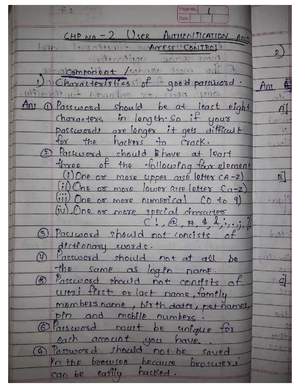 Page 1
Date
CHP NO - 2 USER AUTHENTICATION AND
ACCESS CONTROL
Component /
1) Characteristics of good password.
Ans ① Password should be at least eight
characters in length. So if your
passwords are longer it gets difficult
for the hackers to crack.
② Password should have at least
three of the following five element
(i) One or more upper case letter (A-Z)
(ii) One or more lower case letter (a-z)
(iii) One or more numerical (0 to 9)
(iv) One or more special character
(!, @, #, $, &, :, ., ;,
③ Password should not consists of
dictionary words.
④ Password should not at all be
the same as login name.
⑤ Password should not consists of
users first or last name, family
members name, birth dates, pet names,
pin and mobile numbers.
⑥ Password must be unique for
each account you have.
⑦ Password should not be saved
in the browser because browsers
can be easily hacked.
2)
Ans